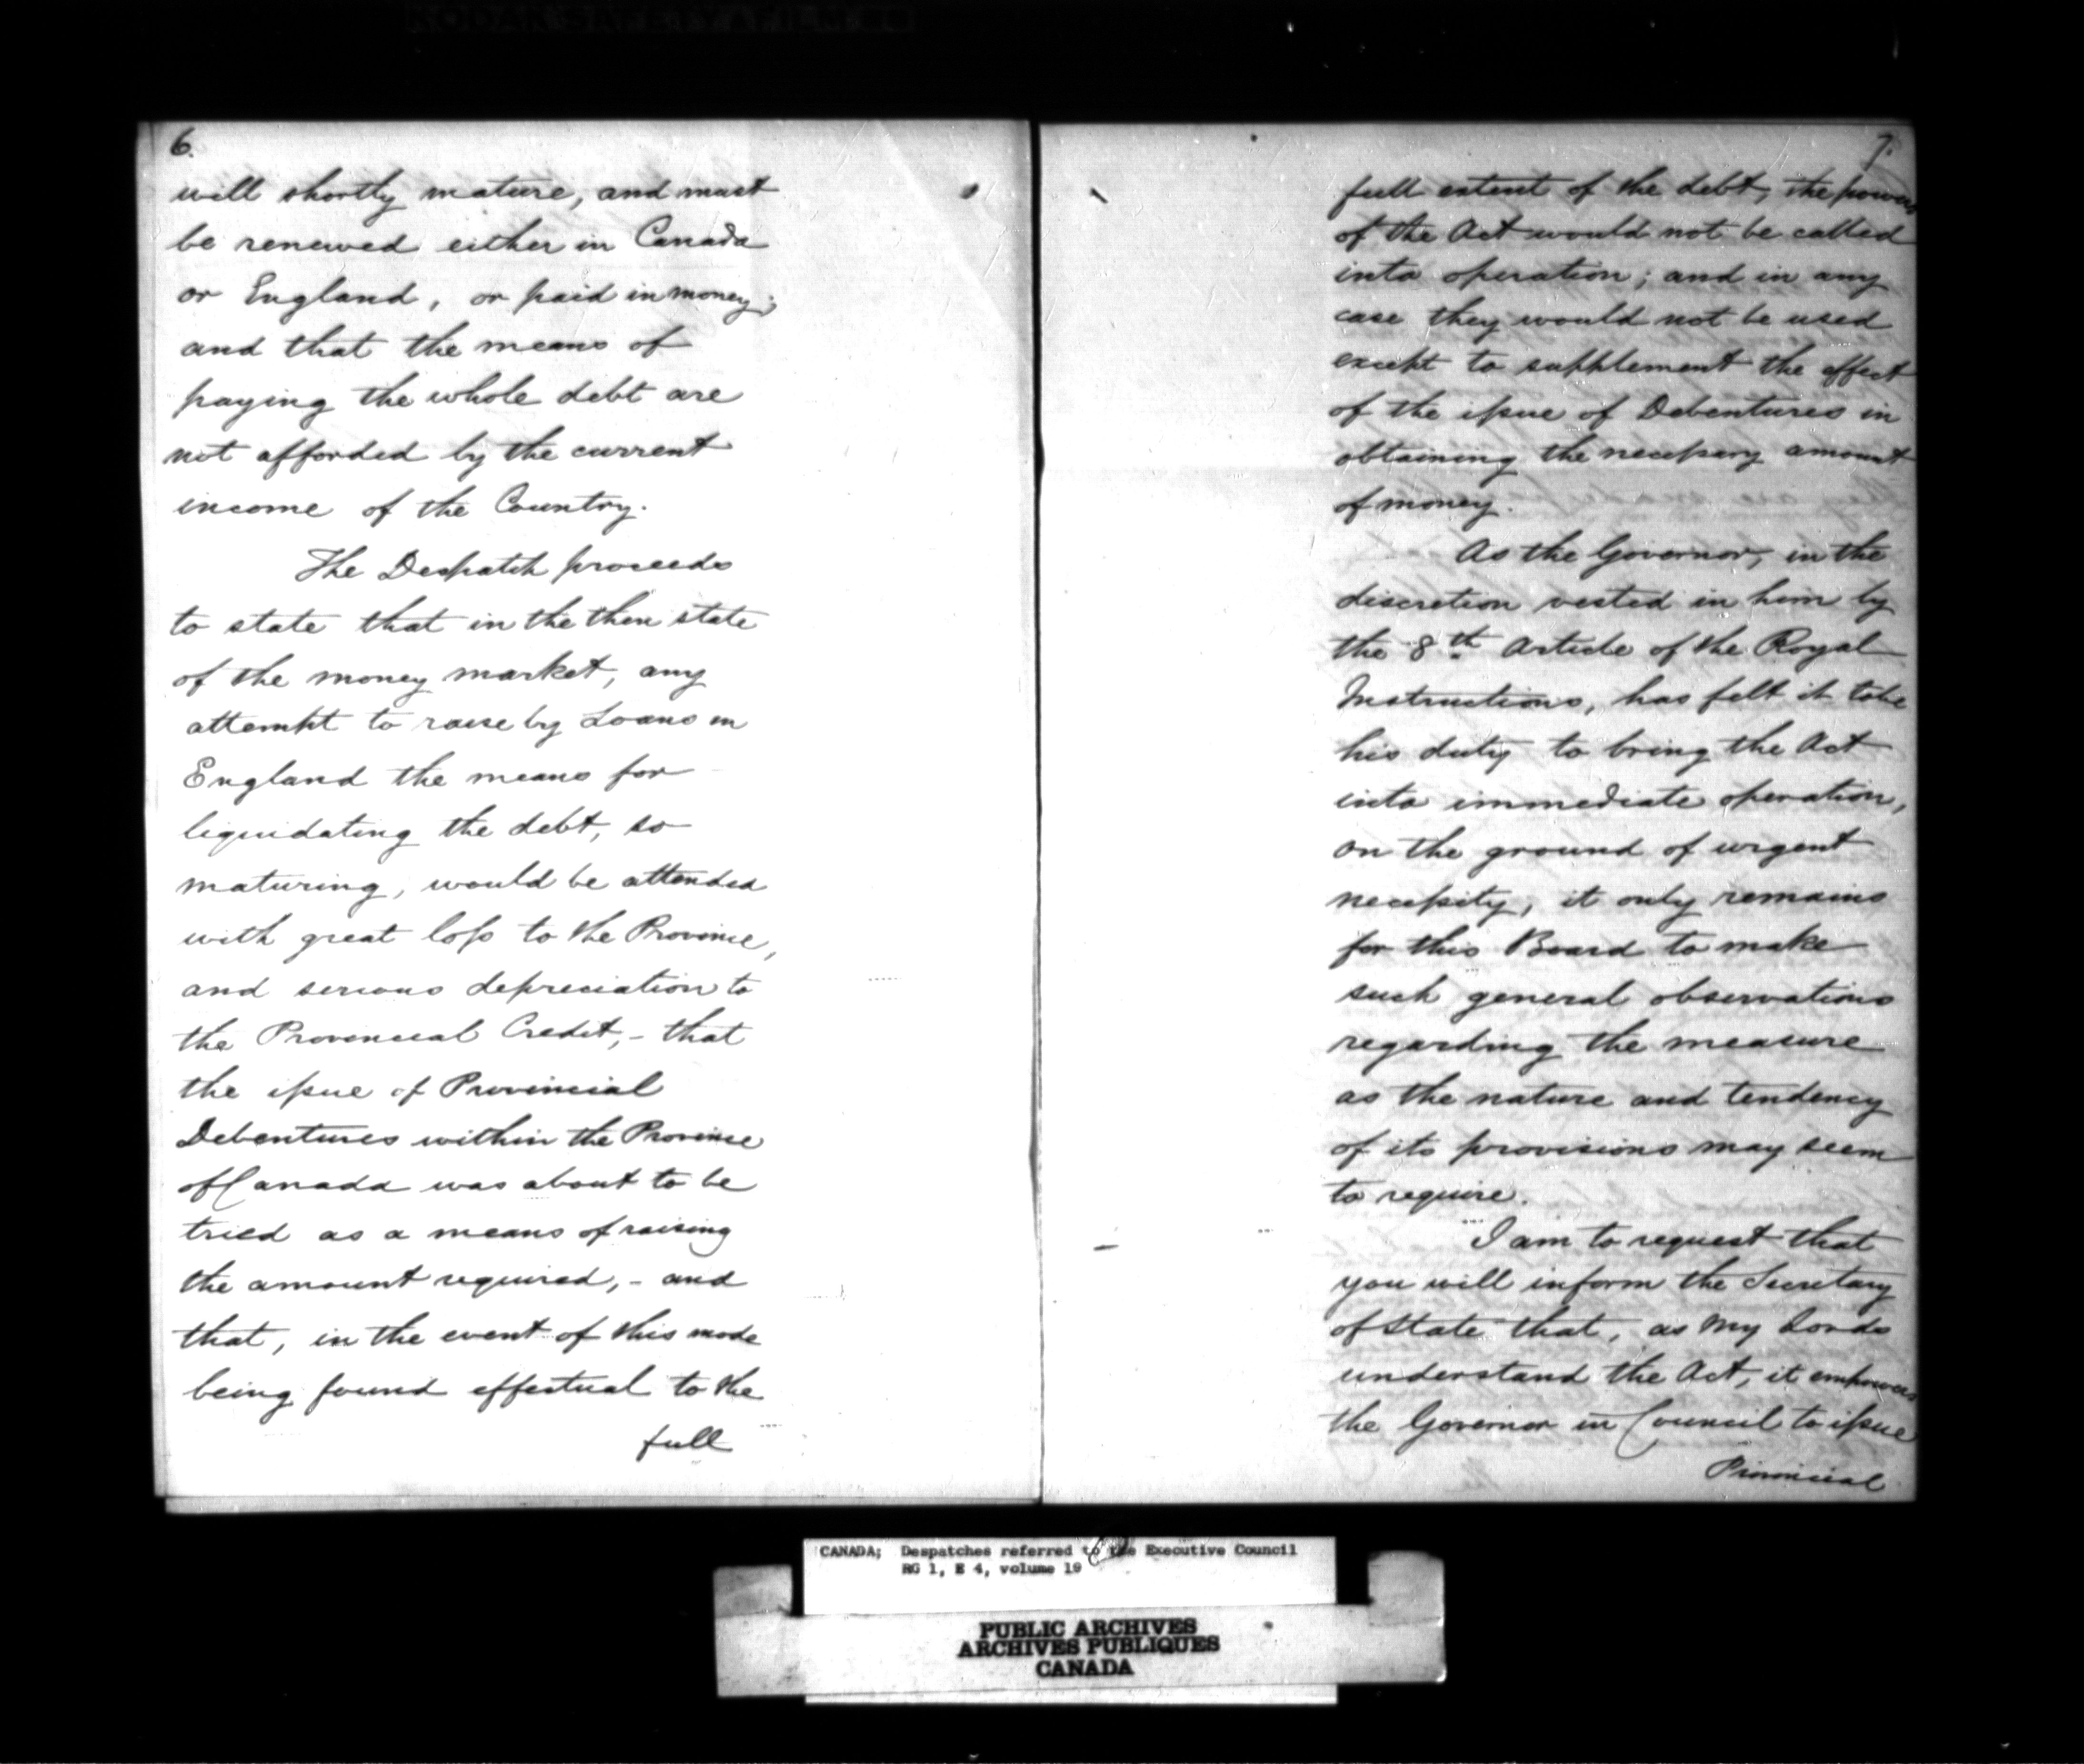 6.
will shortly mature, and must
be renewed either in Canada
or England, or paid in money;
and that the means of
paying the whole debt are
not afforded by the current
income of the Country.
The Despatch proceeds
to state that in the then state
of the money market, any
attempt to raise by Loans in
England the means for
liquidating the debt, so
maturing, would be attended
with great loss to the Province,
and serious depreciation to
the Provincial Credit,- that
the issue of Provincial
Debentures within the Province
of Canada was about to be
tried as a means of raising
the amount required,- and
that, in the event of this mode
being found effectual to the
full
7.
full extent of the debt, the powers
of the Act would not be called
into operation; and in any
case they would not be used
except to supplement the effect
of the issue of Debentures in
obtaining the necessary amount
of money.
As the Governor, in the
discretion vested in him by
the 8th Article of the Royal
Instructions, has felt it to be
his duty to bring the Act
into immediate operation,
on the ground of urgent
necessity, it only remains
for this Board to make
such general observations
regarding the measure
as the nature and tendency
of its provisions may seem
to require.
I am to request that
you will inform the Secretary
of State that, as My Lords
understand the Act, it empowers
the Governor in Council to issue
Provincial
CANADA; Despatches referred to the Executive Council
RG 1, E 4, volume 19
PUBLIC ARCHIVES
ARCHIVES PUBLIQUES
CANADA